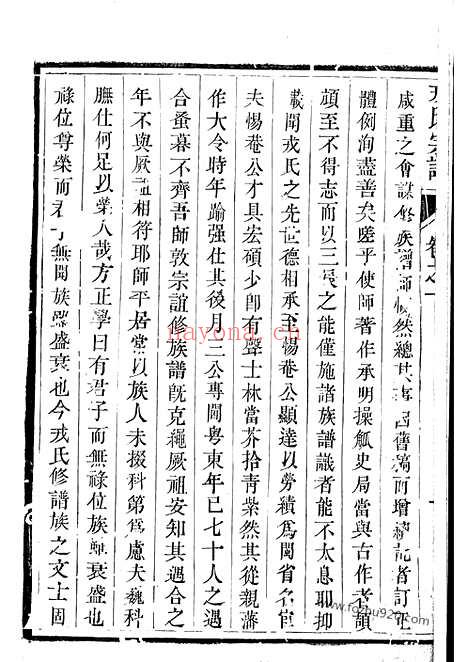 戎氏宗譜 卷之一
咸重之會謀修族譜師慨然總其事因舊藁而增續記者訂正
體例洵盡善矣嗟乎使師著作承明操觚史局當與古作者頡
頏至不得志而以三長之能僅施諸族譜識者能不太息聊抑
載聞戎氏之先世德相承至惕菴公顯達以勞績爲閩省名官
夫惕菴公才具宏碩少卽有聲士林當芥拾青紫然其從親藩
作大令時年踰强仕其後月三公專閫粤東年已七十人之遇
合蚤暮不齊吾師敦宗誼修族譜旣克繩厥祖安知其遇合之
年不與厥祖相符耶師平居常以族人未掇科第爲慮夫巍科
膴仕何足以榮人哉方正學曰有君子而無祿位族雖衰盛也
祿位尊榮而君子無聞族雖盛衰也今戎氏修譜族之文士固
nayona.cn
www.fozhu920.com